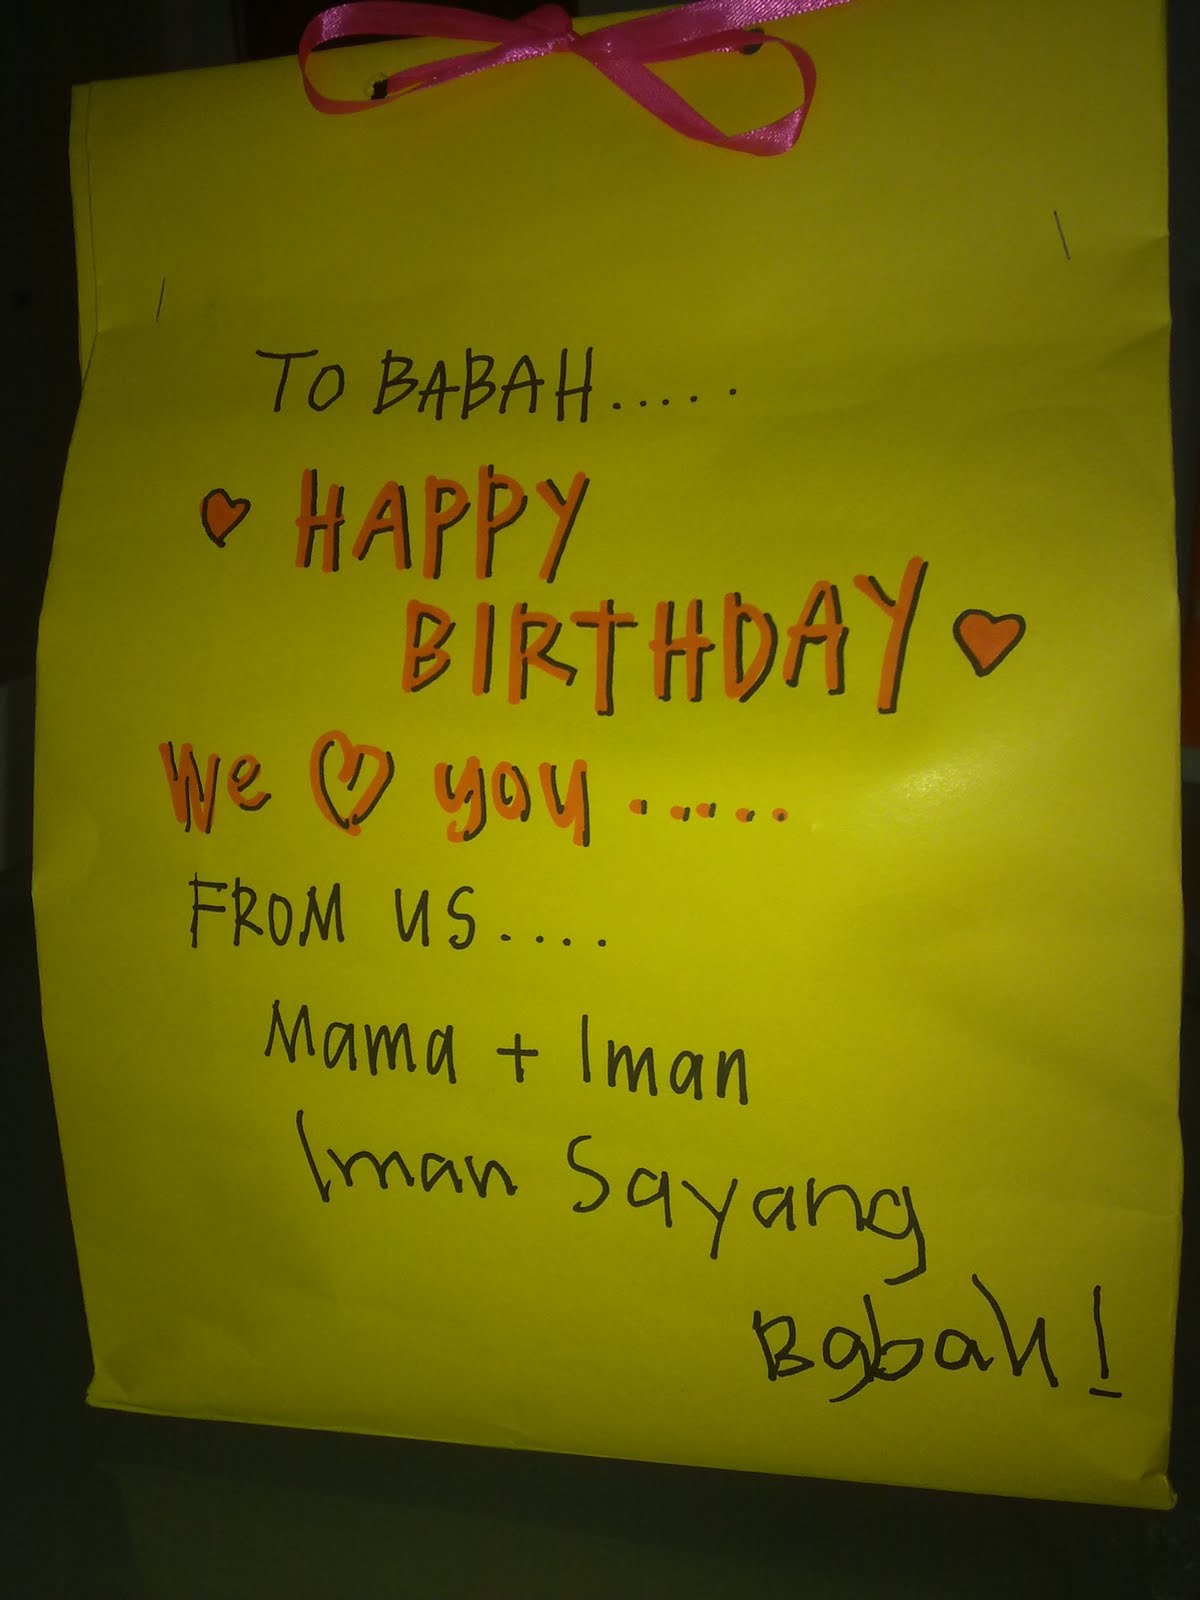 TO BABAH.....
♥ HAPPY
BIRTHDAY ♥
We ♡ you .....
FROM US....
Mama + Iman
Iman Sayang
Bgbah!